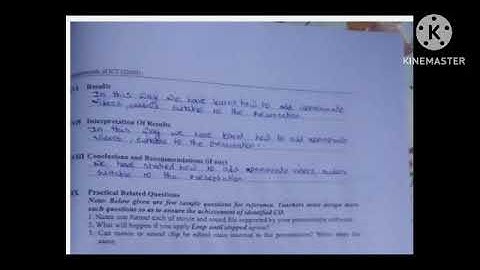 KINEMASTER
Results
In this way we have learnt how to add appropriate
videos, suitable to the presentation
Interpretation Of Results
In this way we have learnt how to add appropriate
videos, suitable to the presentation.
Conclusions and Recommendations (if any)
We have studied how to add appropriate videos
suitable to the presentation
IX Practical Related Questions
Note: Below given are few sample questions for reference. Teachers must design more
such questions so as to ensure the achievement of identified CO.
1. Name one format each of movie and sound file supported by your presentation software.
2. What will happen if you apply Loop until stopped option?
3. Can movie or sound clip be edited once inserted in the presentation? Write steps for
same.